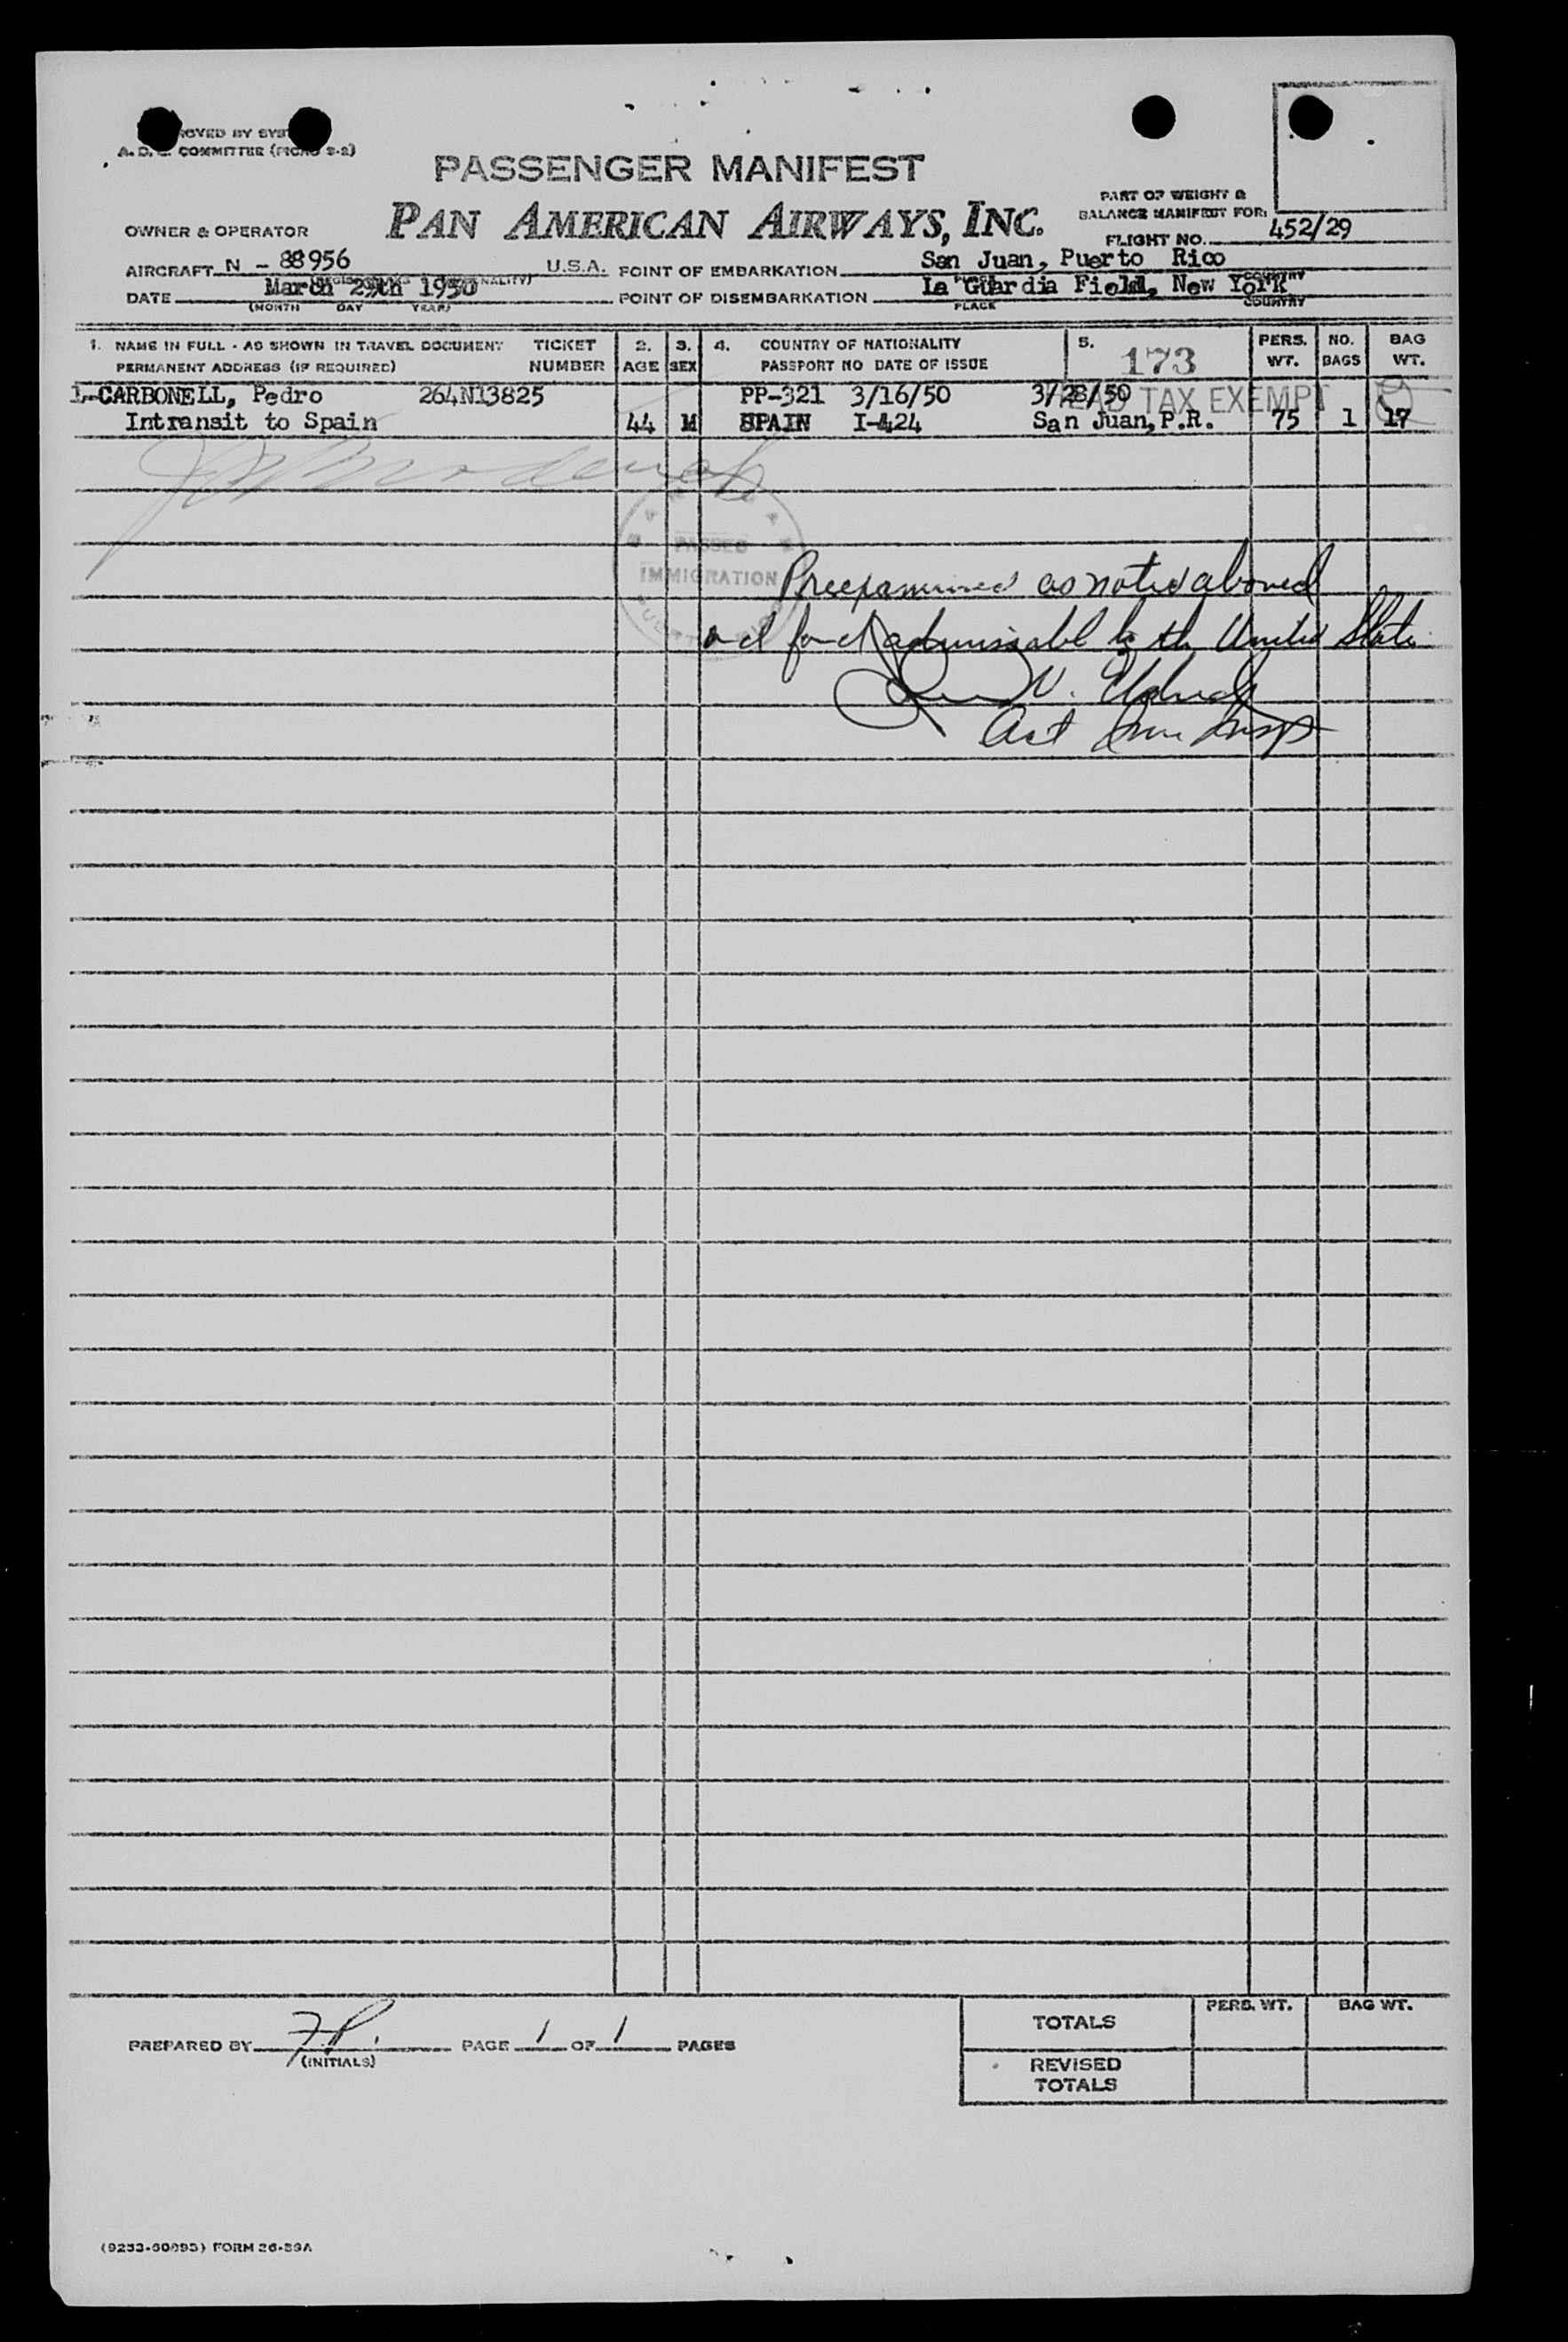 PROVED BY SYS
A.D. COMMITTEE (PICAO 9-2)
PASSENGER MANIFEST
PAN AMERICAN AIRWAYS, INC.
PART OF WEIGHT &
BALANCE MANIFEST FOR:
FLIGHT NO. 452/29
OWNER & OPERATOR
AIRCRAFT N - 88956 U.S.A. POINT OF EMBARKATION San Juan, Puerto Rico
COUNTRY
DATE March 29th 1950 POINT OF DISEMBARKATION La Guardia Field, New York
(MONTH DAY YEAR) PLACE COUNTRY
1. NAME IN FULL - AS SHOWN IN TRAVEL DOCUMENT TICKET 2. 3. 4. COUNTRY OF NATIONALITY 5. 173 PERS. NO. BAG
PERMANENT ADDRESS (IF REQUIRED) NUMBER AGE SEX PASSPORT NO DATE OF ISSUE WT. BAGS WT.
1-CARBONELL, Pedro 264N13825 PP-321 3/16/50 3/28/50
HEAD TAX EXEMPT
Intransit to Spain 44 M SPAIN I-424 San Juan, P.R. 75 1 17
PASSED
IMMIGRATION
Preexamined as noted above
and found admissable to the United States
V.
Act Imm Insp
PREPARED BY F.P. PAGE 1 OF 1 PAGES
(INITIALS)
PERS. WT. BAG WT.
TOTALS
REVISED
TOTALS
(9253-60093) FORM 26-39A